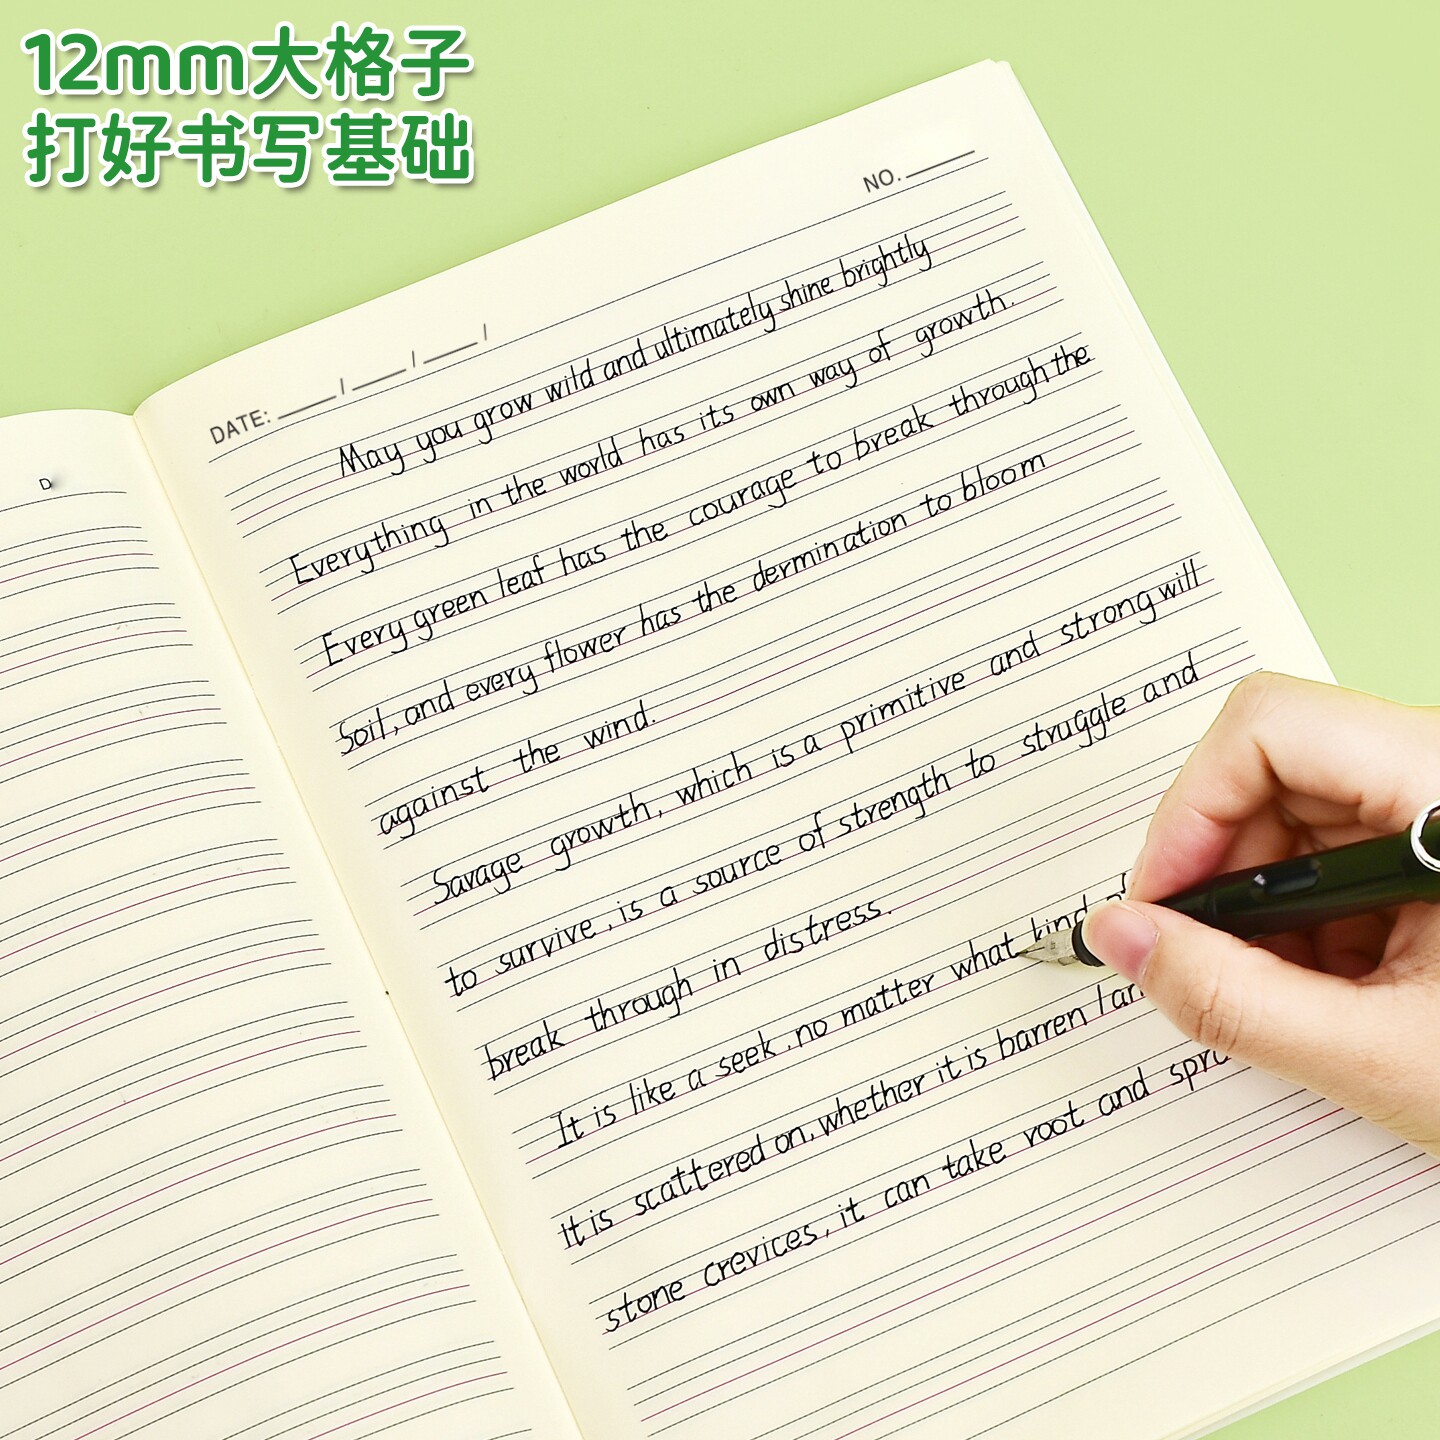 12mm大格子
打好书写基础
NO.
DATE: / / /
May you grow wild and ultimately shine brightly
Everything in the world has its own way of growth.
Every green leaf has the courage to break through the
Soil, and every flower has the dermination to bloom
against the wind.
Savage growth, which is a primitive and strong will
to survive, is a source of strength to struggle and
break through in distress.
It is like a seek, no matter what kind of
It is scattered on, whether it is barren
stone crevices, it can take root and
D